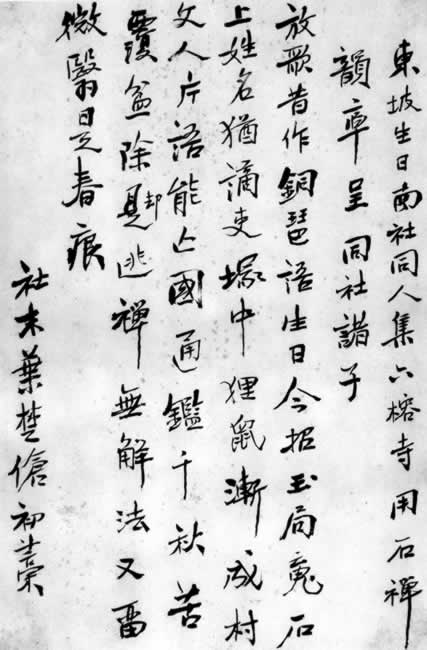 東坡生日南社同人集六榕寺用石禪
韻率呈同社諸子
放歌昔作銅琶語生日今招玉局魂石
上姓名猶謫吏塚中狸鼠漸成村
文人片語能亡國通鑑千秋苦
覆盆除是却逃禪無解法又留
微翳是春痕
社末葉楚傖初稾